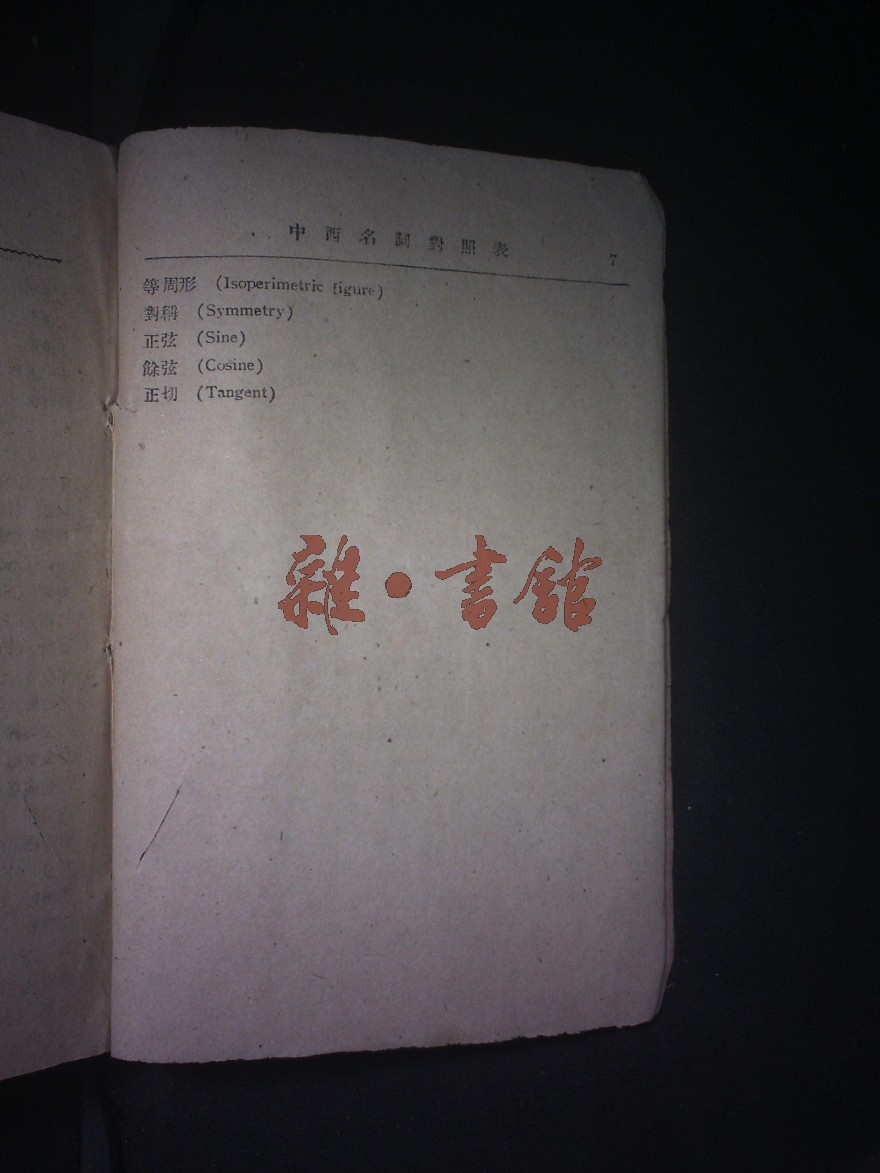 中西名詞對照表 7
等周形 (Isoperimetric figure)
對稱 (Symmetry)
正弦 (Sine)
餘弦 (Cosine)
正切 (Tangent)
雜·書館